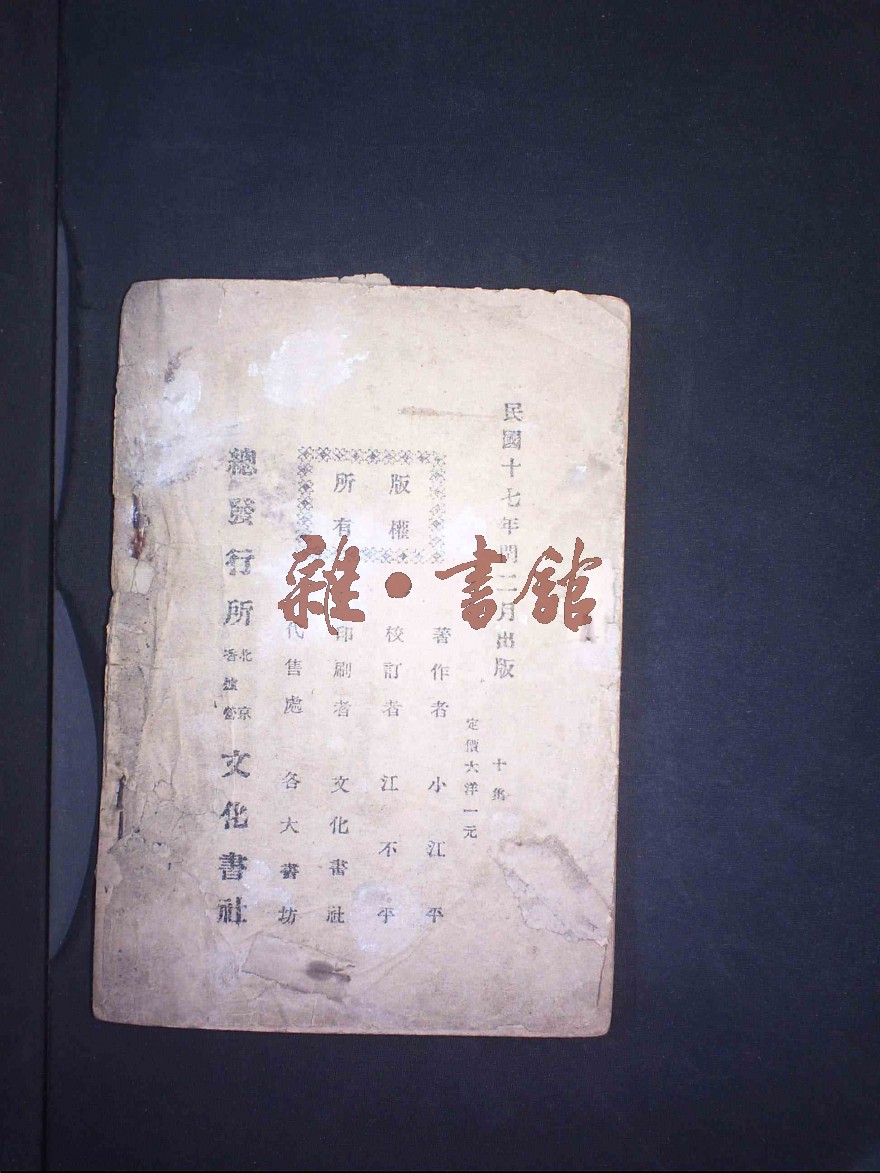 民國十七年閏二月出版
十集
定價大洋一元
版權
所有
著作者 小江平
校訂者 江不平
印刷者 文化書社
代售處 各大書坊
總發行所 北京 文化書社
雜·書館